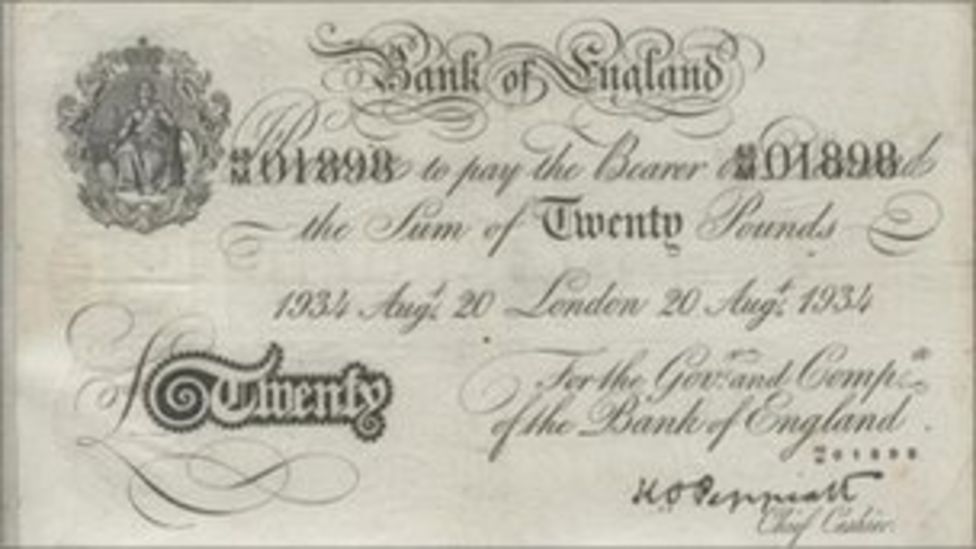 Bank of England
01898 to pay the Bearer 01898
the Sum of Twenty Pounds
1934 Augt. 20 London 20 Augt. 1934
For the Govr. and Compa.
£Twenty
of the Bank of England.
01898
K O Peppiatt
Chief Cashier.